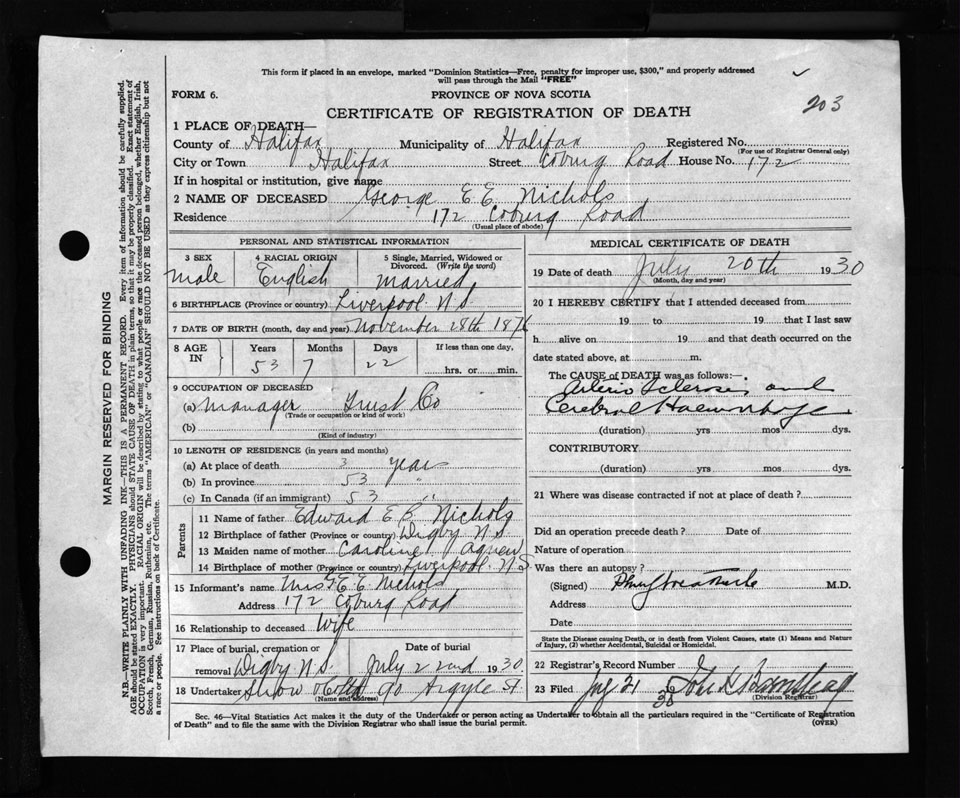 This form if placed in an envelope, marked "Dominion Statistics—Free, penalty for improper use, $300," and properly addressed
will pass through the Mail "FREE"
203
FORM 6.
PROVINCE OF NOVA SCOTIA
CERTIFICATE OF REGISTRATION OF DEATH
1 PLACE OF DEATH—
County of Halifax Municipality of Halifax Registered No.
(For use of Registrar General only)
City or Town Halifax Street Coburg Road House No. 172
If in hospital or institution, give name
2 NAME OF DECEASED George E. E. Nichols
Residence 172 Coburg Road
(Usual place of abode)
PERSONAL AND STATISTICAL INFORMATION
3 SEX 4 RACIAL ORIGIN 5 Single, Married, Widowed or
Divorced. (Write the word)
Male English Married
6 BIRTHPLACE (Province or country) Liverpool N.S.
7 DATE OF BIRTH (month, day and year) November 28th 1876
8 AGE IN Years Months Days If less than one day,
53 7 22 hrs. or min.
9 OCCUPATION OF DECEASED
(a) Manager Trust Co
(Trade or occupation or kind of work)
(b)
(Kind of industry)
10 LENGTH OF RESIDENCE (in years and months)
(a) At place of death 3 years
(b) In province 53 "
(c) In Canada (if an immigrant) 53 "
Parents
11 Name of father Edward E B Nichols
12 Birthplace of father (Province or country) Digby N.S.
13 Maiden name of mother Caroline Agnew
14 Birthplace of mother (Province or country) Liverpool N.S.
15 Informant's name Mrs G E E Nichols
Address 172 Coburg Road
16 Relationship to deceased Wife
17 Place of burial, cremation or
removal Digby N.S. July 22nd 1930
18 Undertaker Snow & Co Ltd 90 Argyle St.
(Name and address)
MEDICAL CERTIFICATE OF DEATH
19 Date of death July 20th 1930
(Month, day and year)
20 I HEREBY CERTIFY that I attended deceased from
19 to 19 that I last saw
h alive on 19 and that death occurred on the
date stated above, at m.
The CAUSE of DEATH was as follows:—
Arterio Sclerosis and
Cerebral Haemorrhage.
(duration) yrs mos dys.
CONTRIBUTORY
(duration) yrs mos dys.
21 Where was disease contracted if not at place of death?
Did an operation precede death? Date of
Nature of operation
Was there an autopsy?
(Signed) M.D.
Address
Date
State the Disease causing Death, or in death from Violent Causes, state (1) Means and Nature
of Injury, (2) whether Accidental, Suicidal or Homicidal.
22 Registrar's Record Number
23 Filed July 21 1930
(Division Registrar)
Sec. 46—Vital Statistics Act makes it the duty of the Undertaker or person acting as Undertaker to obtain all the particulars required in the "Certificate of Registration
of Death" and to file the same with the Division Registrar who shall issue the burial permit.
(OVER)
MARGIN RESERVED FOR BINDING
N.B.—WRITE PLAINLY WITH UNFADING INK—THIS IS A PERMANENT RECORD. Every item of information should be carefully supplied.
AGE should be stated EXACTLY. PHYSICIANS should STATE CAUSE OF DEATH in plain terms, so that it may be properly classified. Exact statement of
OCCUPATION is very important. RACIAL ORIGIN will be described by stating to what people or race the deceased person belonged, whether English, Irish,
Scotch, French, German, Russian, Ruthenian, etc. The terms "AMERICAN" or "CANADIAN" SHOULD NOT BE USED as they express citizenship but not
a race or people. See instructions on back of Certificate.